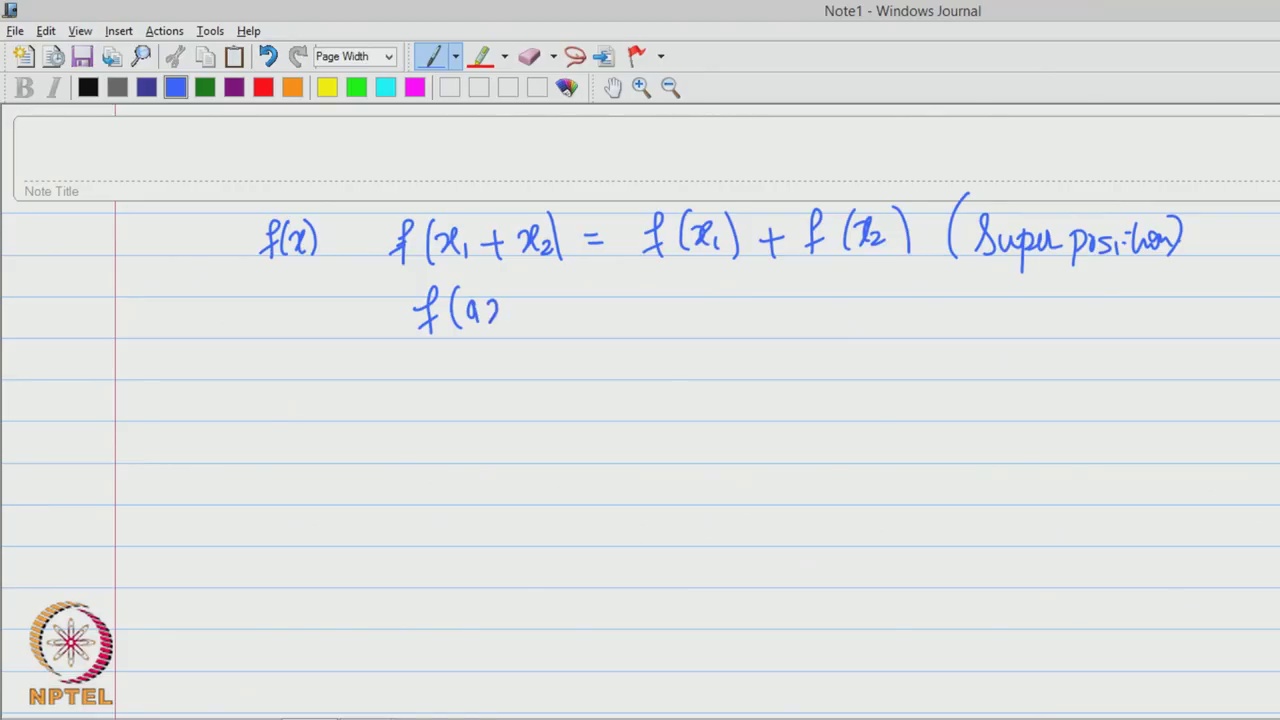 Note1 - Windows Journal
File Edit View Insert Actions Tools Help
Page Width
B I
Note Title
f(x) f(x₁ + x₂) = f(x₁) + f(x₂) (Superposition)
f(ax
NPTEL